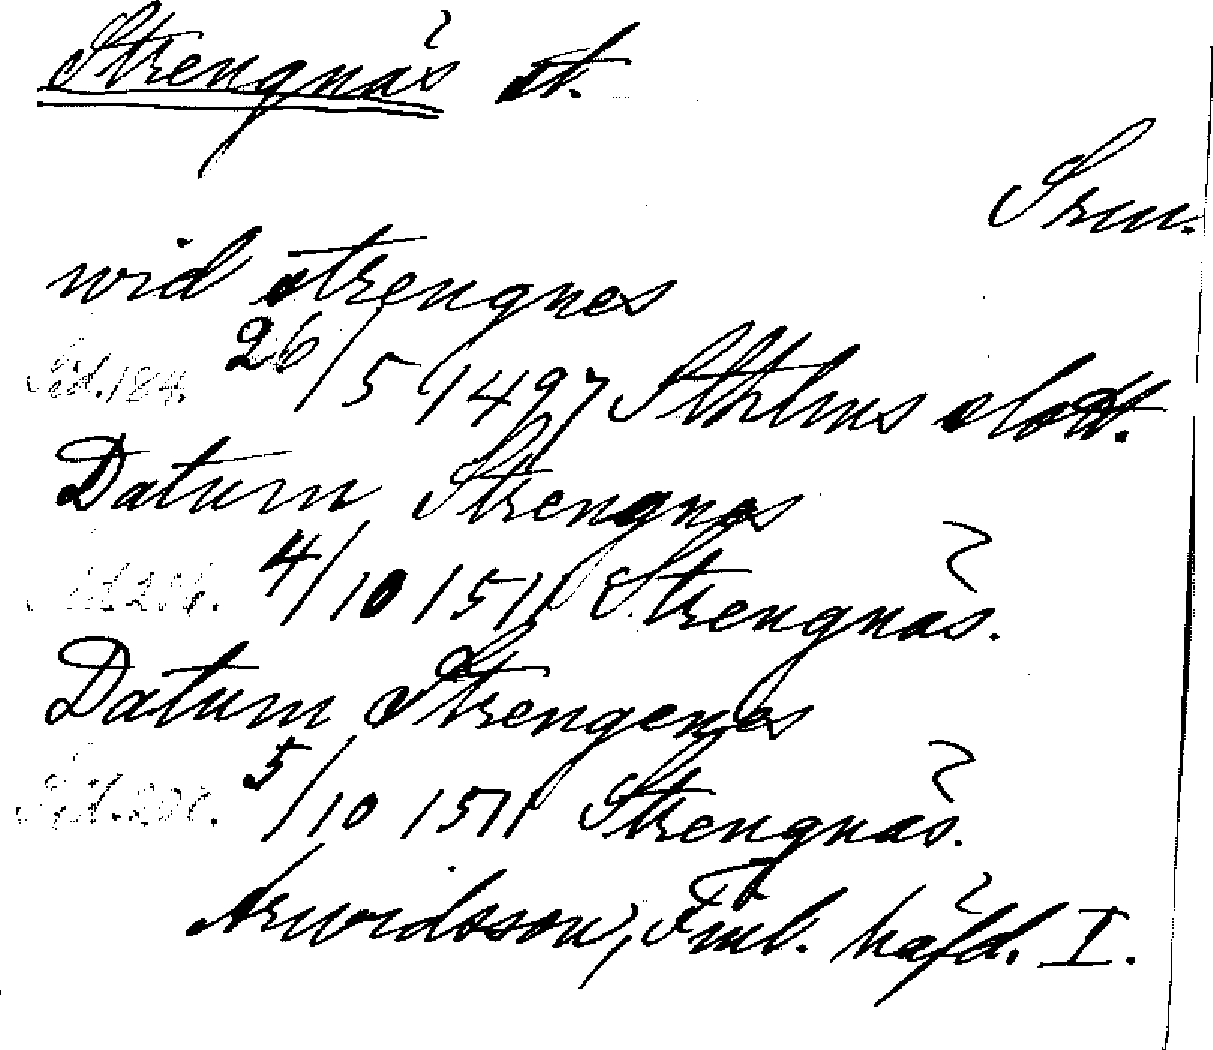 Strengnäs st.
Srm.
wid strengnes
Sid. 184. 26/5 1497 Sthlms slott.
Datum Strengnes
4/10 1511 Strengnäs.
Datum Strengenes
5/10 1511 Strengnäs.
Arwidsson, Finl. häfd. I.